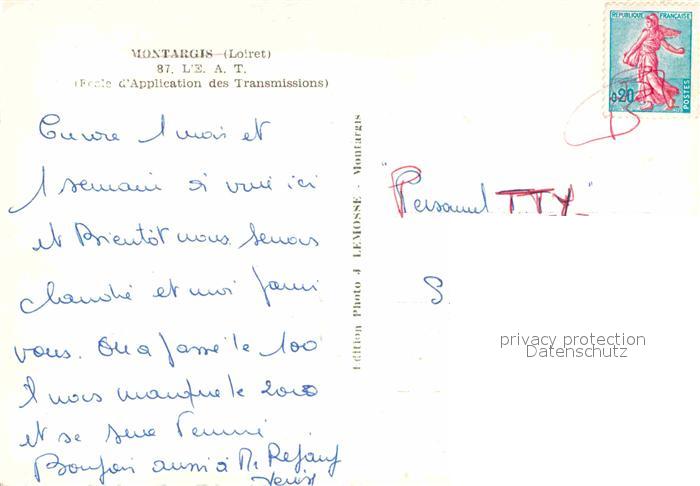 MONTARGIS (Loiret)
87. L'E. A. T.
(Ecole d'Application des Transmissions)
1 mois et
1 semaine à ici
et Bientôt nous serons
et moi parmi
vous. On a passé le 100
Il nous manque le 2000
et se sera terminé
Bonjour aussi à M.
Edition Photo J LEMOSSE - Montargis
REPUBLIQUE FRANÇAISE
0,20
POSTES
"Personnel T.T.Y."
S.
privacy protection
Datenschutz